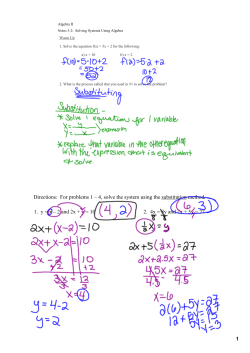 Algebra II
Notes 3.2: Solving Systems Using Algebra
Warm Up
1. Solve the equation f(x) = 5x + 2 for the following:
a) x = 10 b) x = 2
f(10)=5·10+2 f(2)=5·2+2
=50+2 10+2
=52 12
2. What is the process called that you used in #1 to solve the problem?
Substituting
Substitution -
* Solve 1 equation for 1 variable
x=
y=
* replace that variable in the other equation
with the expression that is equivalent
& solve
Directions: For problems 1 – 4, solve the system using the substitution method.
1. and 2x + = 10 (4,2) 2. and (6,3)
2x+(x-2)=10 ⅓x=y
2x+x-2=10 2x+5(½x)=27
3x-2=10 2x+2.5x=27
+2 +2 4.5x=27
3x=12 4.5 4.5
3 3 x=6
x=4 2(6)+5y=27
y=4-2 12+5y=27
y=2 5y=15
y=3
1